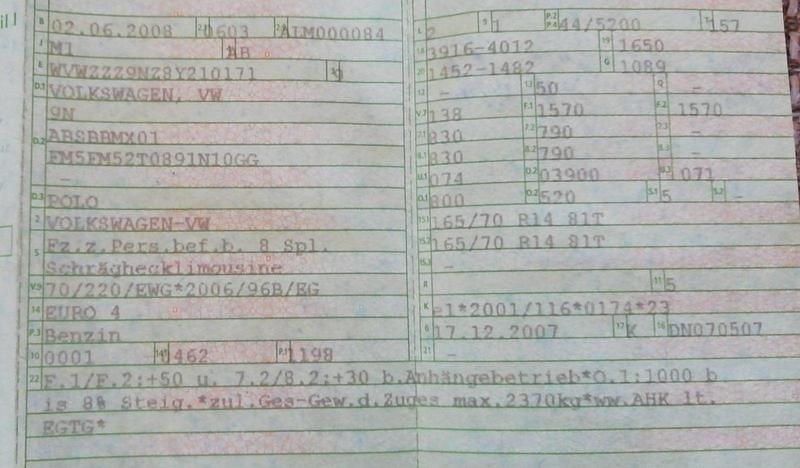 B 02.06.2008 0603 ALM000084
J M1 AB
E WVWZZZ9NZ8Y210171
D.1 VOLKSWAGEN, VW
9N
D.2 ABSBBMX01
FM5FM52T0891N10GG
-
D.3 POLO
2 VOLKSWAGEN-VW
5 Fz.z.Pers.bef.b. 8 Spl.
Schräghecklimousine
V.9 70/220/EWG*2006/96B/EG
14 EURO 4
P.3 Benzin
10 0001 14.1 0462 P.1 1198
L 2 9 1 P.2 P.4 44/5200 T 157
18 3916-4012 19 1650
20 1452-1482 G 1089
12 - 13 50 Q -
V.7 138 F.1 1570 F.2 1570
7.1 830 7.2 790 7.3 -
8.1 830 8.2 790 8.3 -
U.1 074 U.2 03900 U.3 071
O.1 800 O.2 520 S.1 5 S.2 -
15.1 165/70 R14 81T
15.2 165/70 R14 81T
15.3 -
R 11 5
K e1*2001/116*0174*23
6 17.12.2007 17 K 16 DN070507
21 -
22 F.1/F.2:+50 u. 7.2/8.2:+30 b.Anhängebetrieb*O.1:1000 b
is 8% Steig.*zul.Ges-Gew.d.Zuges max.2370kg*ww.AHK lt.
EGTG*